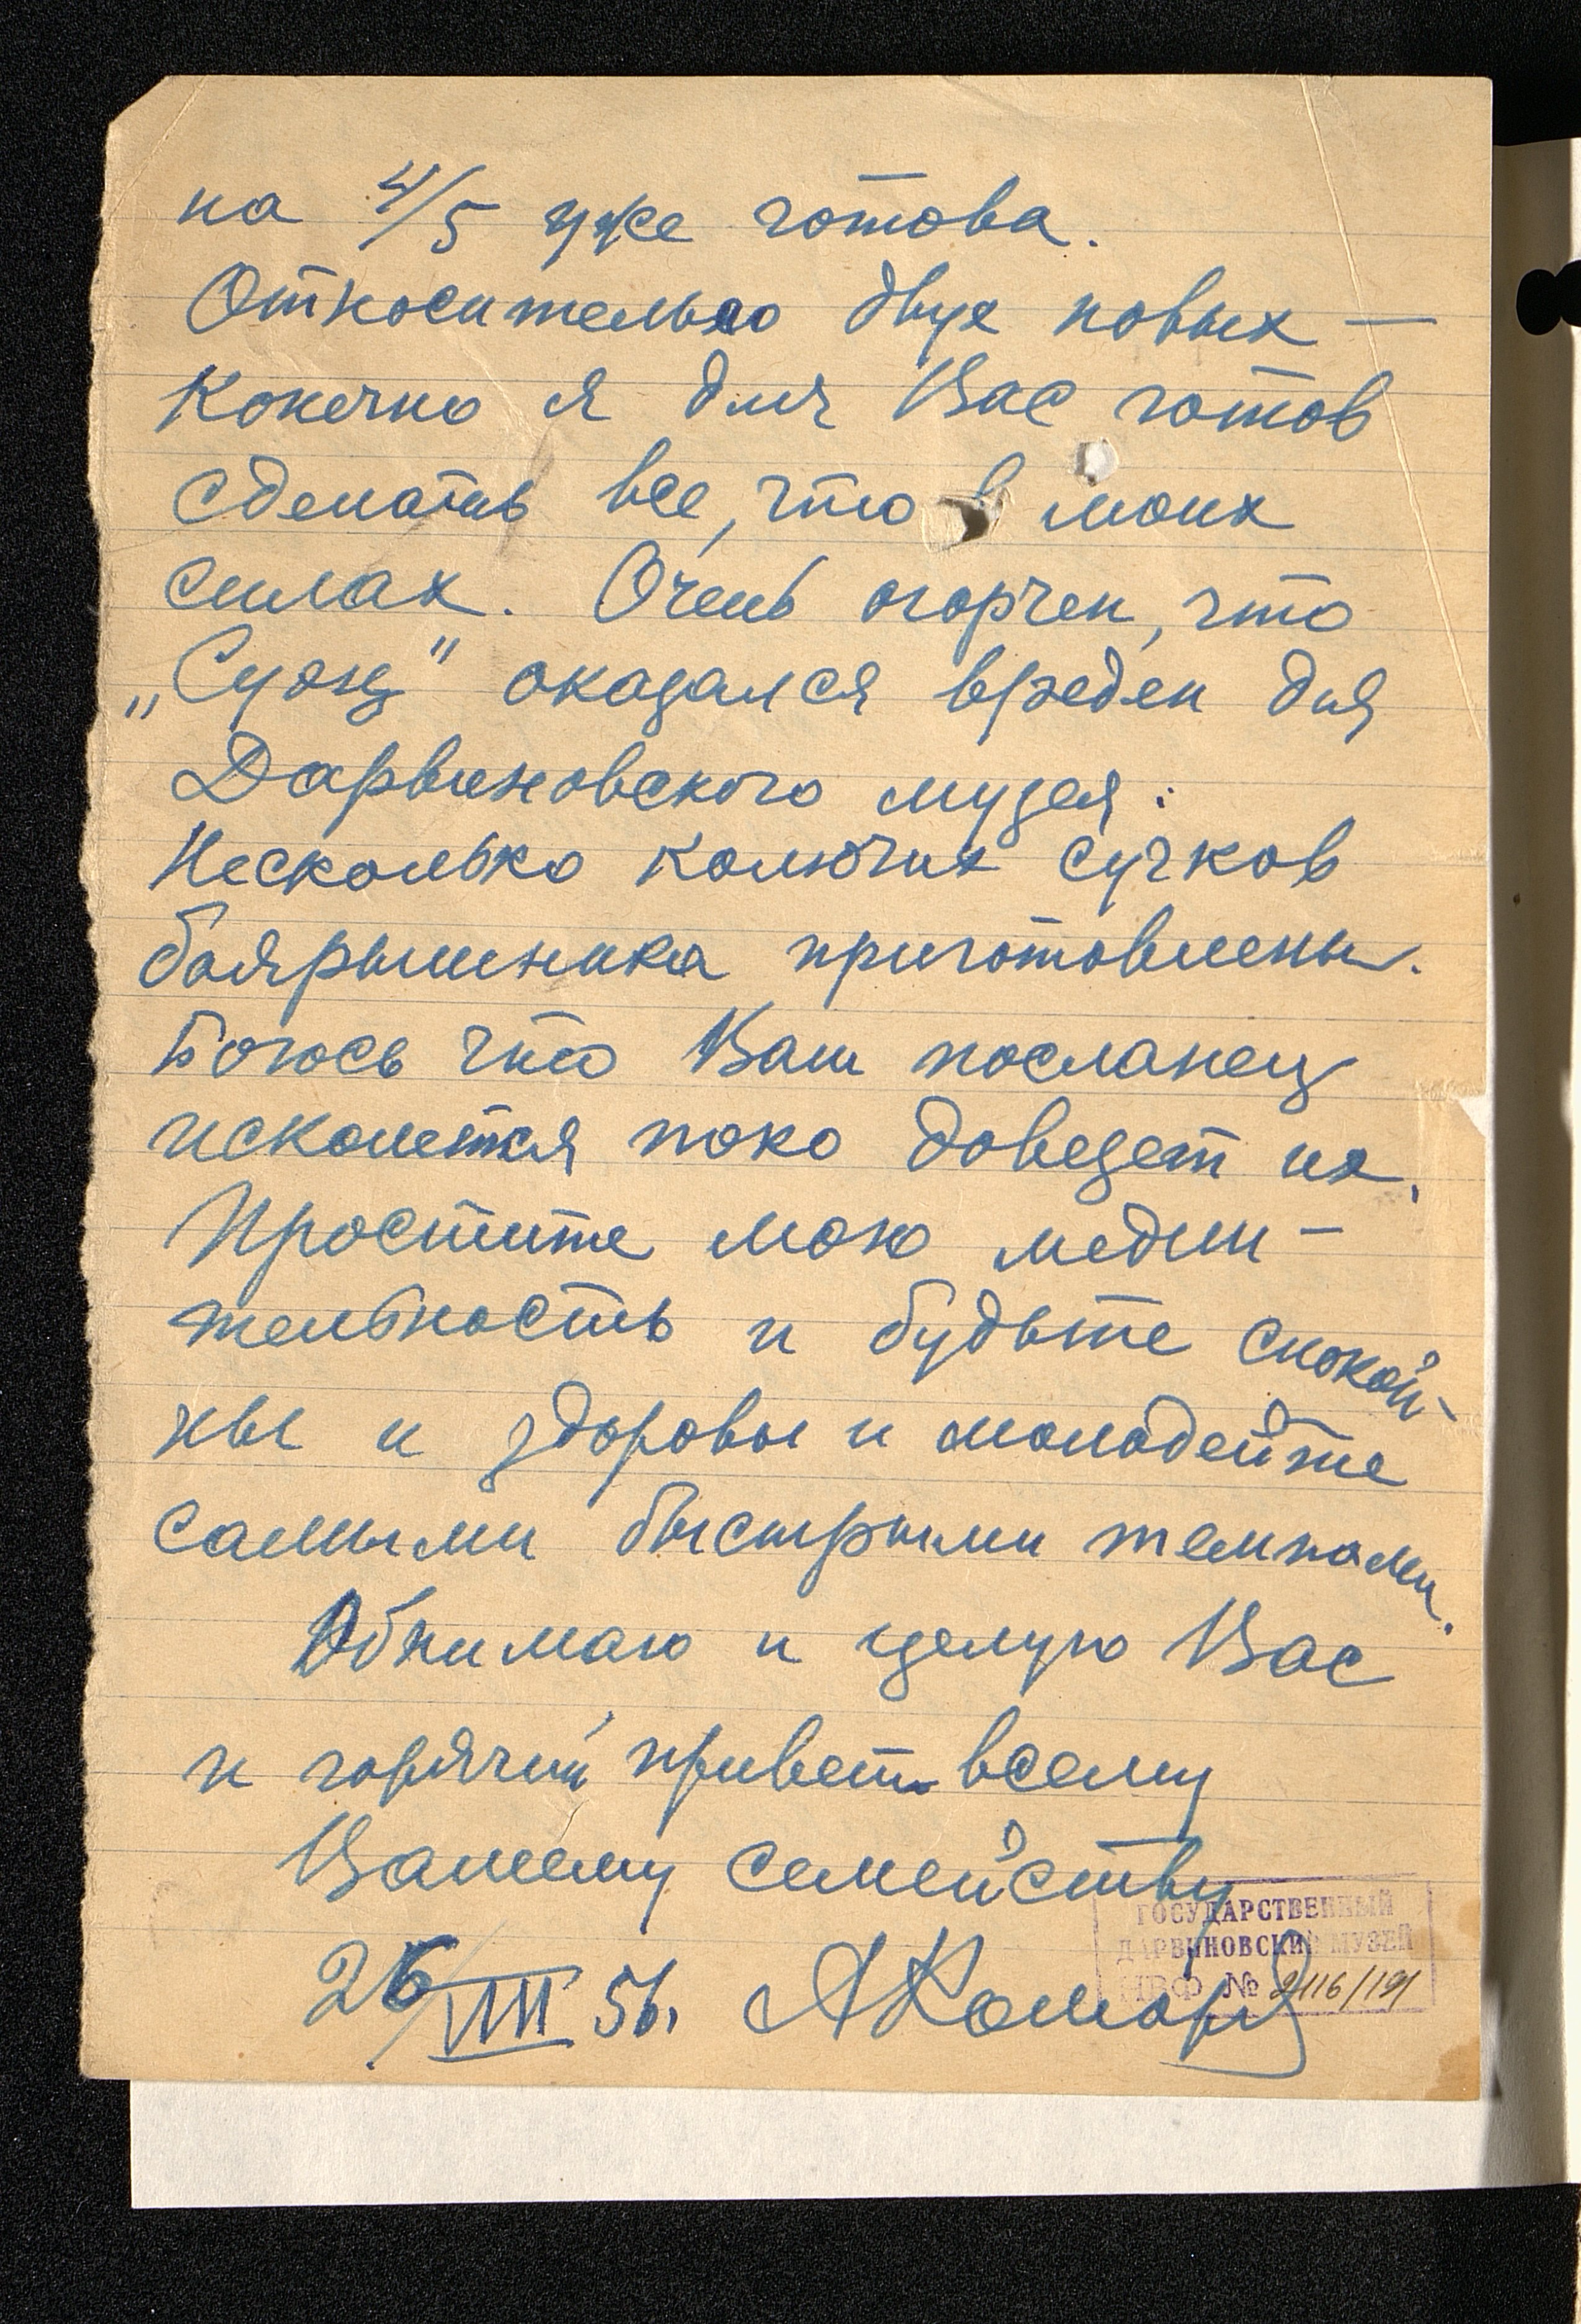 на 4/5 уже готова.
Относительно двух новых —
Конечно я для Вас готов
сделать все, что в моих
силах. Очень огорчен, что
„Суэц" оказался вреден для
Дарвиновского музея.
Несколько колючих сучков
боярышника приготовлены.
Боюсь что Ваш посланец
исколется пока довезет их.
Простите мою медли-
тельность и будьте спокой-
ны и здоровы и молодейте
самыми быстрыми темпами.
Обнимаю и целую Вас
и горячий привет всему
Вашему семейству
26/VIII 56. АКомаров
ГОСУДАРСТВЕННЫЙ
ДАРВИНОВСКИЙ МУЗЕЙ
НВФ № 2116/191